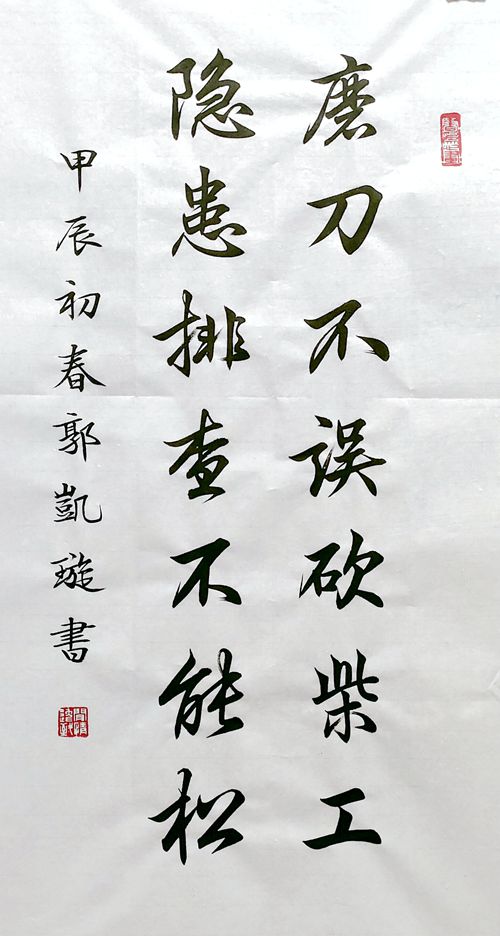 磨刀不误砍柴工
隐患排查不能松
甲辰初春郭凱璇書